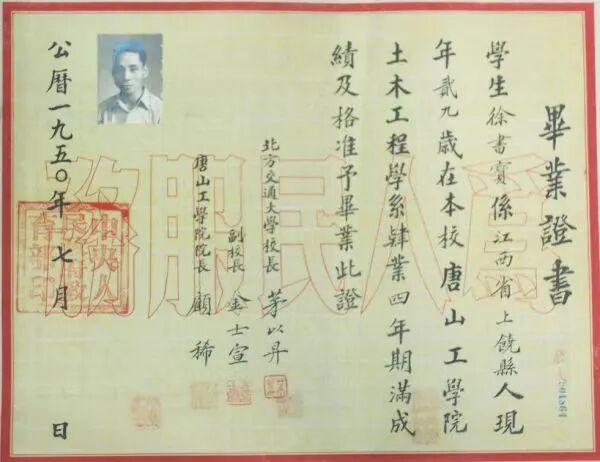 畢業證書
學生徐書寶係江西省上饒縣人現
年貳九歲在本校唐山工學院
土木工程學系肄業四年期滿成
績及格准予畢業此證
北方交通大學校長 茅以昇
副校長 金士宣
唐山工學院院長 顧稀
公曆一九五〇年七月 日
爲人民服務
中央人民政府教育部印